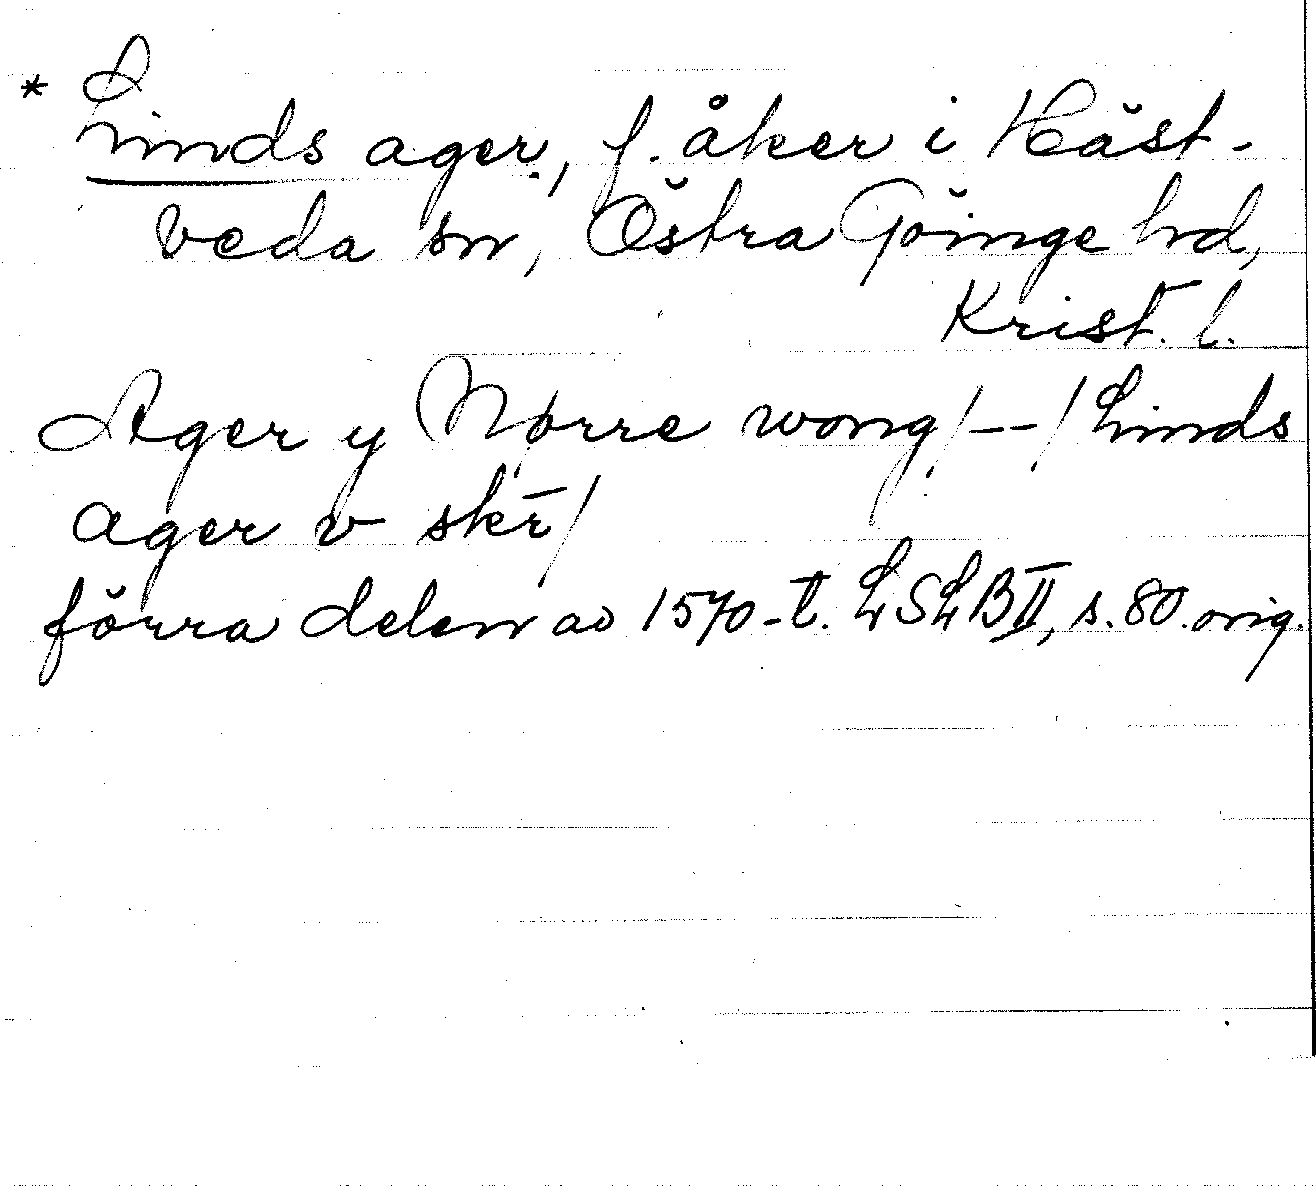 * Linds ager, f. åker i Häst-
veda sn, Östra Göinge hd,
Krist. l.
Ager y Nørre wong/--/Linds
ager v skr̄/
förra delen av 1570-t. LSLB II, s. 80. orig.